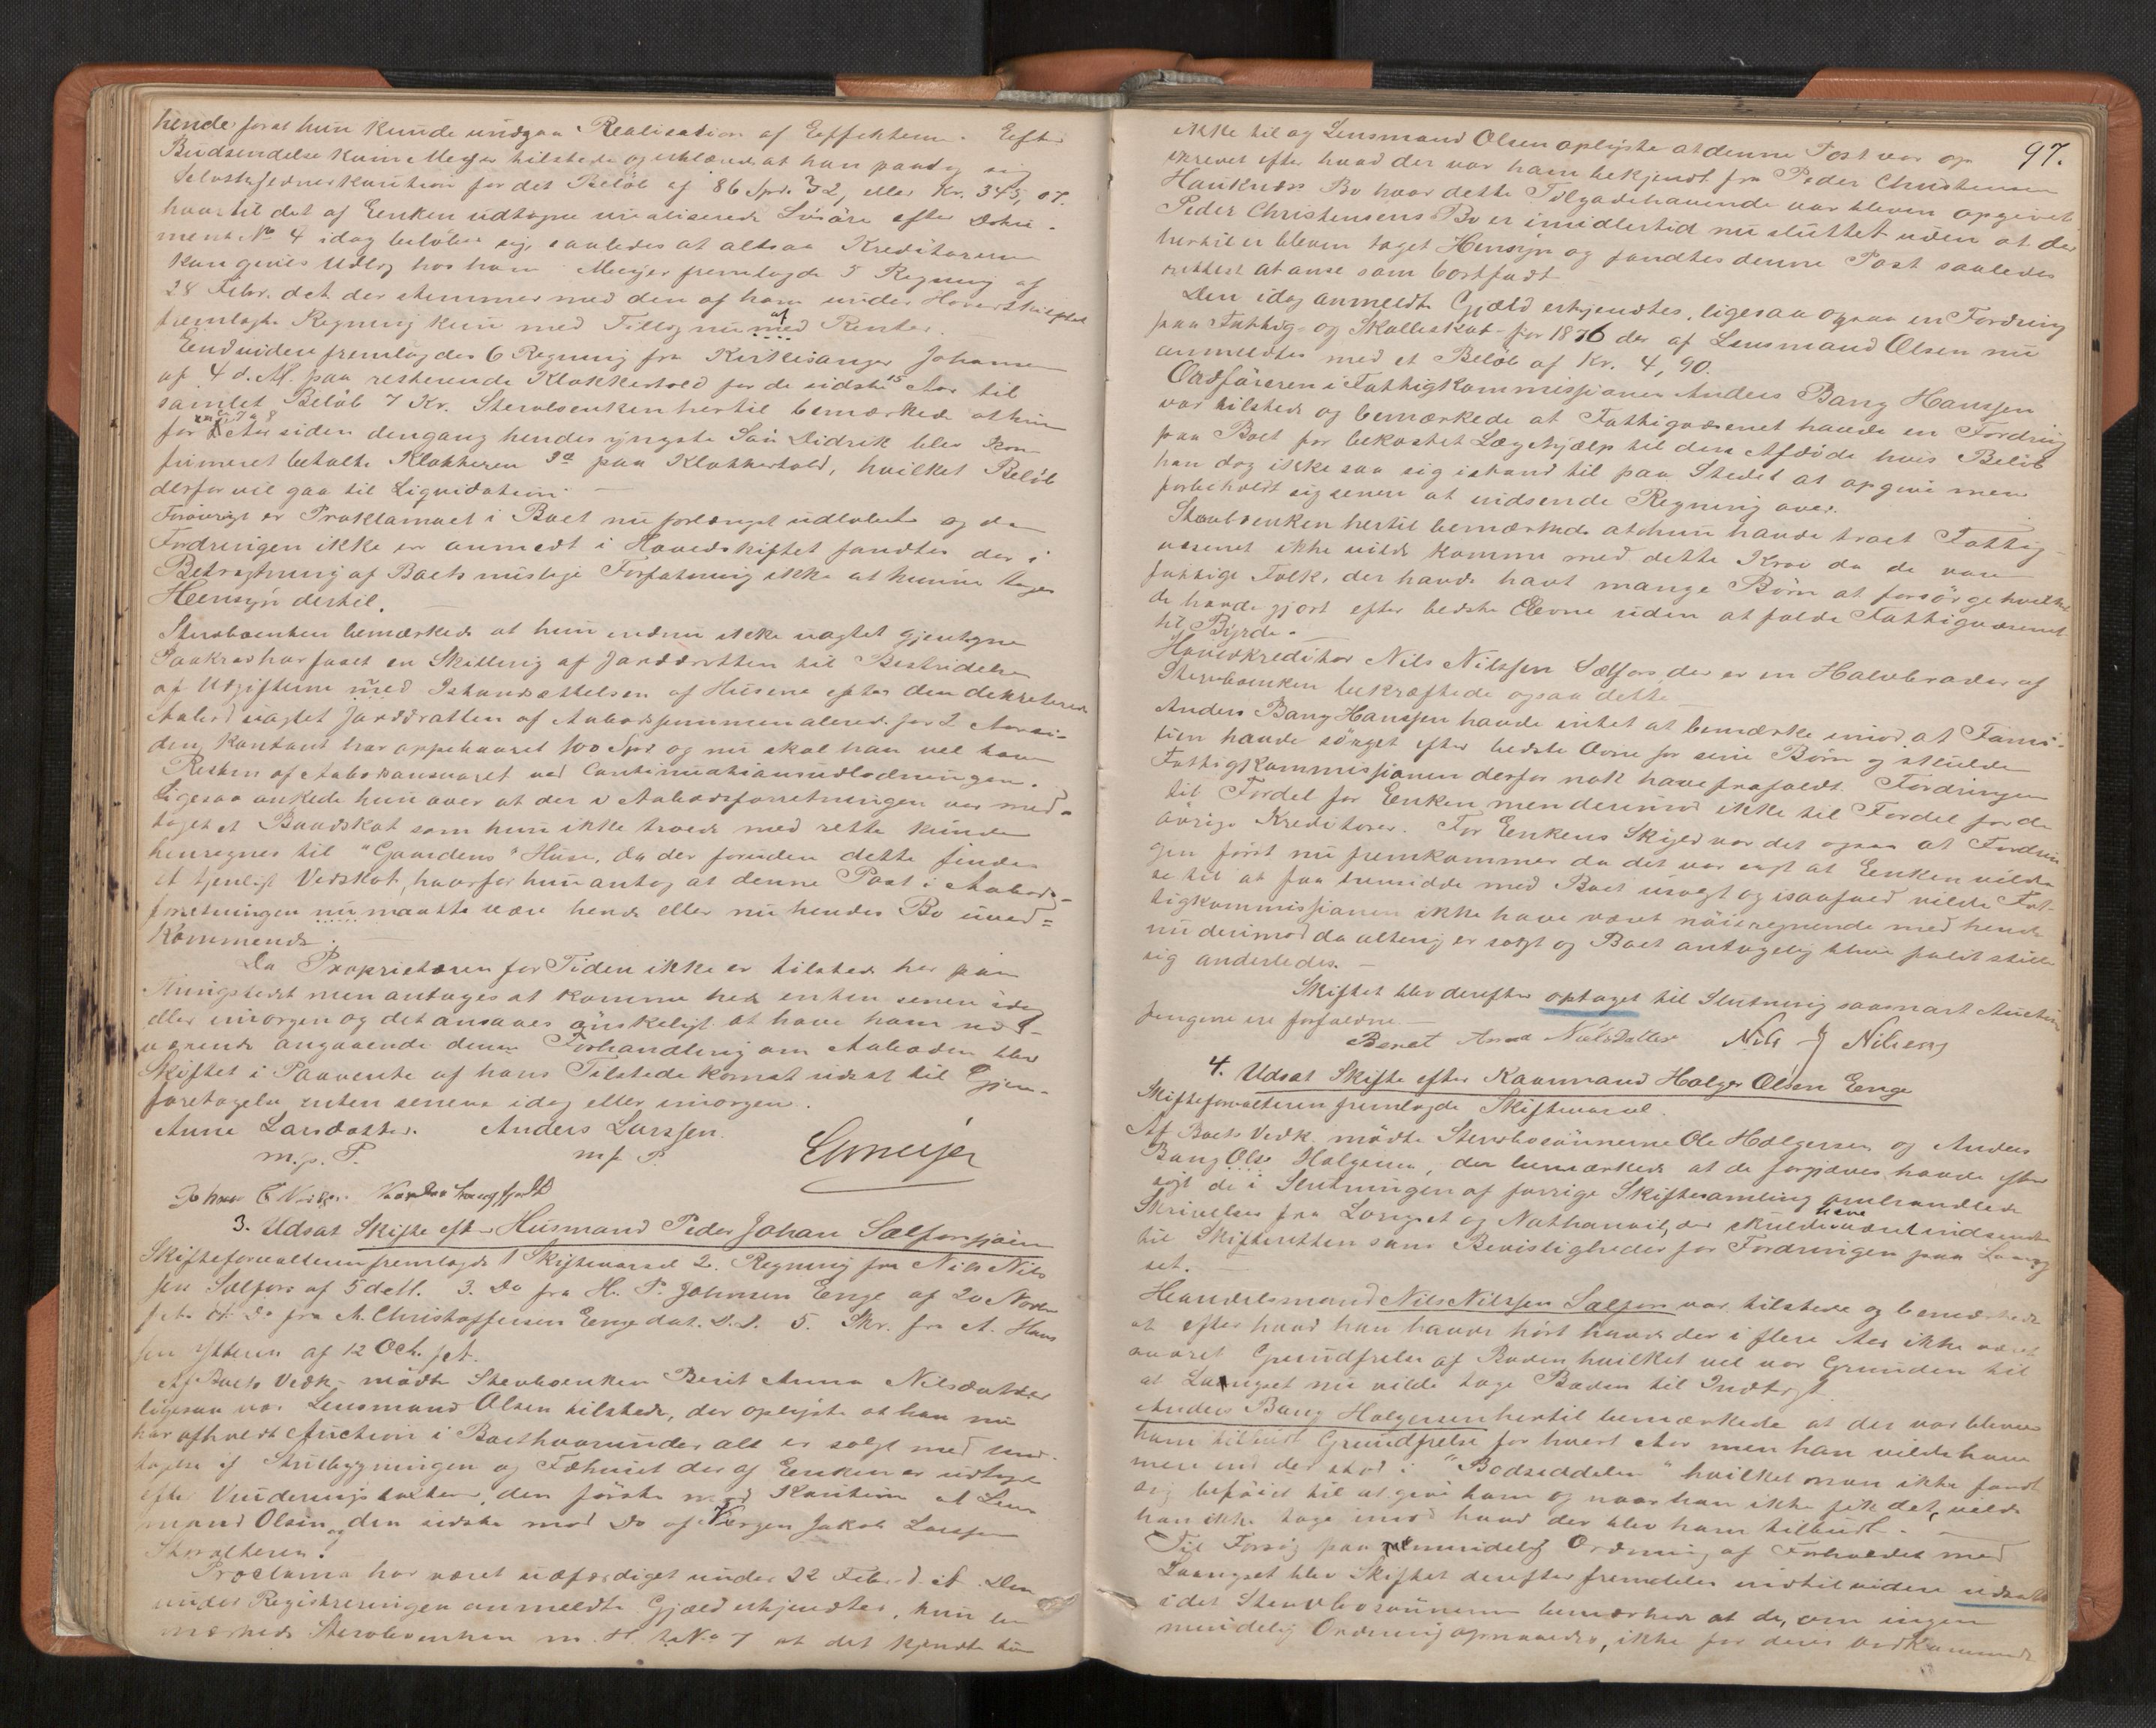 hende forat hun kunde undgaa Realisation af Effekterne. Efter
Budsendelse kom Meyer tilstede og erklærede at han paatog sig
Selvskyldnerkaution for det Beløb af 86 Spd. 32, eller Kr. 345,07.
hvortil det af Enken udtagne urealiserede Løsøre efter Doku-
ment No 4 idag beløber sig, saaledes at altsaa Kreditorerne
kan gives Udlæg hos ham. Meyer fremlagde 5 Regning af
28 Febr. d.A. der stemmer med den af ham under Hovedskiftet
fremlagte Regning kun med Tillæg nu af Renter.
Endvidere fremlagdes 6 Regning fra Kirkesanger Johansen
af 4 d.M. paa resterende Klokkertold for de sidste 15 Aar til
samlet Beløb 7 Kr. Stervboenken hertil bemærkede at hun
for 7 a 8 Aar siden dengang hendes yngste Søn Didrik blev kon-
firmeret betalte Klokkeren paa Klokkertold, hvilket Beløb
derfor vil gaa til Liquidation. —
Forøvrigt er Proklamaet i Boet nu forlængst udløbet og da
Fordringen ikke er anmeldt i Hovedskiftet fandtes der i
Betragtning af Boets mislige Forfatning ikke at kunne tages
Hensyn dertil. —
Stervboenken bemærkede at hun endnu ikke uagtet gjentagne
Paakrav har faaet en Skilling af Jorddrotten til Bestridelse
af Udgifterne med Istandsættelsen af Husene efter den dekreterede
Aabod uagtet Jorddrotten af Aabodssummen allerede for 2 Aar si-
den kontant har oppebaaret 100 Spd og nu skal han vel have
Resten af Aabodsansvaret ved Continuationsudlodningen.
Ligesaa ankede hun over at der i Aabodsforretningen var med-
taget et Baadskot som hun ikke troede med rette kunde
henregnes til "Gaardens" Huse, da der foruden dette findes
et tjenligt Vedskot, hvorfor hun antog at denne Post i Aabods-
forretningen nu maatte være hende eller nu hendes Bo uved-
kommende. —
Da Proprietæren for Tiden ikke er tilstede her paa
Thingstedet men antages at komme her enten senere idag
eller imorgen og det ansaaes ønskeligt at have ham nær-
værende angaaende denne Forhandling om Aaboden blev
Skiftet i Paavente af hans Tilstedekomst udsat til Gjen-
foretagelse enten senere idag eller imorgen.
Anne Larsdatter. Anders Larssen.
m.p.P. m.f.P. Emeijer
Johan
3. Udsat Skifte eft. Husmand Peder Johan Sælforsgjøen
Skifteforvalteren fremlagde 1 Skiftevarsel 2. Regning fra Nils Nils-
sen Sælfors af 5 d.M. 3. Do fra H. P. Johnsen Enge af 20 Novbr
f.A. 4. Do fra A. Christoffersen Enge dat. D.D. 5. Skr. fra A. Hans-
sen Ytteren af 12 Oct. f.A.
Af Boets Vedk. mødte Stervboenken Berit Anna Nilsdatter
ligesaa var Lensmand Olsen tilstede, der oplyste at han nu
har afholdt Auction i Boet hvorunder alt er solgt med Und-
tagelse af Stuebygningen og Fæhuset der af Enken er udtaget
efter Vurderingstaxten, den første mod Kaution af Lens-
mand Olsen og den sidste mod Do af Værgen Jakob Larssen
Skovalteren!
Proclama har været udfærdiget under 22 Febr. d.A. Den
under Registreringen anmeldte Gjæld erkjendtes, kun be-
mærkede Stervboenken m. H. t. No 7 at det kjendte hun
97.
ikke til og Lensmand Olsen oplyste at denne Post var op-
skrevet efter hvad der var ham bekjendt fra Peder Christensen
Hauknæs Bo hvor dette Tilgodehavende var bleven opgivet
Peder Christensens Bo er imidlertid nu sluttet uden at der
hertil er bleven taget Hensyn og fandtes denne Post saaledes
rettest at anse som bortfaldt.
Den idag anmeldte Gjæld erkjendtes, ligesaa ogsaa en Fordring
paa Fattig- og Skoleskat for 1876 der af Lensmand Olsen nu
anmeldtes med et Beløb af Kr. 4,90.
Ordføreren i Fattigkommissionen Anders Bang Hanssen
var tilstede og bemærkede at Fattigvæsenet havde en Fordring
paa Boet for bekostet Lægehjælp til den Afdøde hvis Beløb
han dog ikke saa sig istand til paa Stedet at opgive men
forbeholdt sig senere at indsende Regning over.
Stervboenken hertil bemærkede at hun havde troet Fattig-
væsenet ikke vilde komme med dette Krav da de vare
fattige Folk, der havde havt mange Børn at forsørge hvilket
de havde gjort efter bedste Evne uden at falde Fattigvæsenet
til Byrde. —
Hovedkreditor Nils Nilssen Sælfors der er en Halvbroder af
Stervboenken bekræftede ogsaa dette —
Anders Bang Hanssen havde intet at bemærke imod at Fami-
lien havde sørget efter bedste Evne for sine Børn og skulde
Fattigkommissionen derfor nok have frafaldt Fordringen
til Fordel for Enken men derimod ikke til Fordel for de
øvrige Kreditorer. For Enkens Skyld var det ogsaa at Fordrin-
gen først nu fremkommer da det var sagt at Enken vilde
se til at faa besidde med Boet usolgt og isaafald vilde Fat-
tigkommissionen ikke have været nøieregnende med hende
nu derimod da alting er solgt og Boet antagelig bliver fallit stiller
sig anderledes. —
Skiftet blev derefter optaget til Slutning saasnart Auctions-
pengene ere forfaldne. —
Beret Anna Nielsdatter Nils J Nilsen
4. Udsat Skifte efter Kaarmand Holger Olsen Enge
Skifteforvalteren fremlagde Skiftevarsel.
Af Boets Vedk. mødte Stervbosønnerne Ole Holgersen og Anders
Bang Holgersen, der bemærkede at de forgjæves havde efter-
søgt de i Slutningen af forrige Skiftesamling omhandlede
Skrivelser fra Langset og Nathanael, der skulde have været indsendte
til Skifteretten som Bevisligheder for Fordringen paa Lang-
set. —
Handelsmand Nils Nilssen Sælfors var tilstede og bemærkede
at efter hvad han havde hørt havde der i flere Aar ikke været
svaret Grundfrelse af Boden hvilket vel var Grunden til
at Langset nu vilde tage Boden til Indtægt.
Anders Bang Holgersen hertil bemærkede at der var bleven
ham tilbudt Grundfrelse for hvert Aar men han vilde have
mere end der stod i "Bodseddelen" hvilket man ikke fandt
sig beføiet til at give ham og naar han ikke fik det, vilde
han ikke tage imod hvad der blev ham tilbudt. —
Til Forsøg paa mindelig Ordning af Forholdet med
Langset blev Skiftet derefter fremdeles indtil videre udsat
idet Stervbosønnerne bemærkede at de, om ingen
mindelig Ordning opnaaedes, ikke for deres Vedkommende